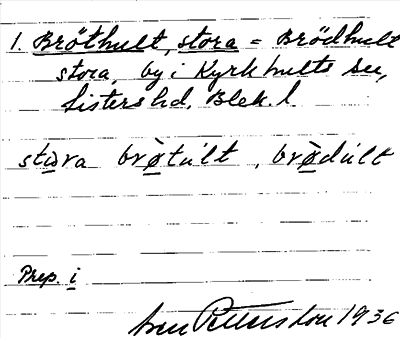 1. Bröthult, stora = Brödhult
stora, by i Kyrkhults sn,
Listers hd, Blek. l.
stωra brø̀túlt, brø̀dúlt
Prep. i
Sven Petersson 1936